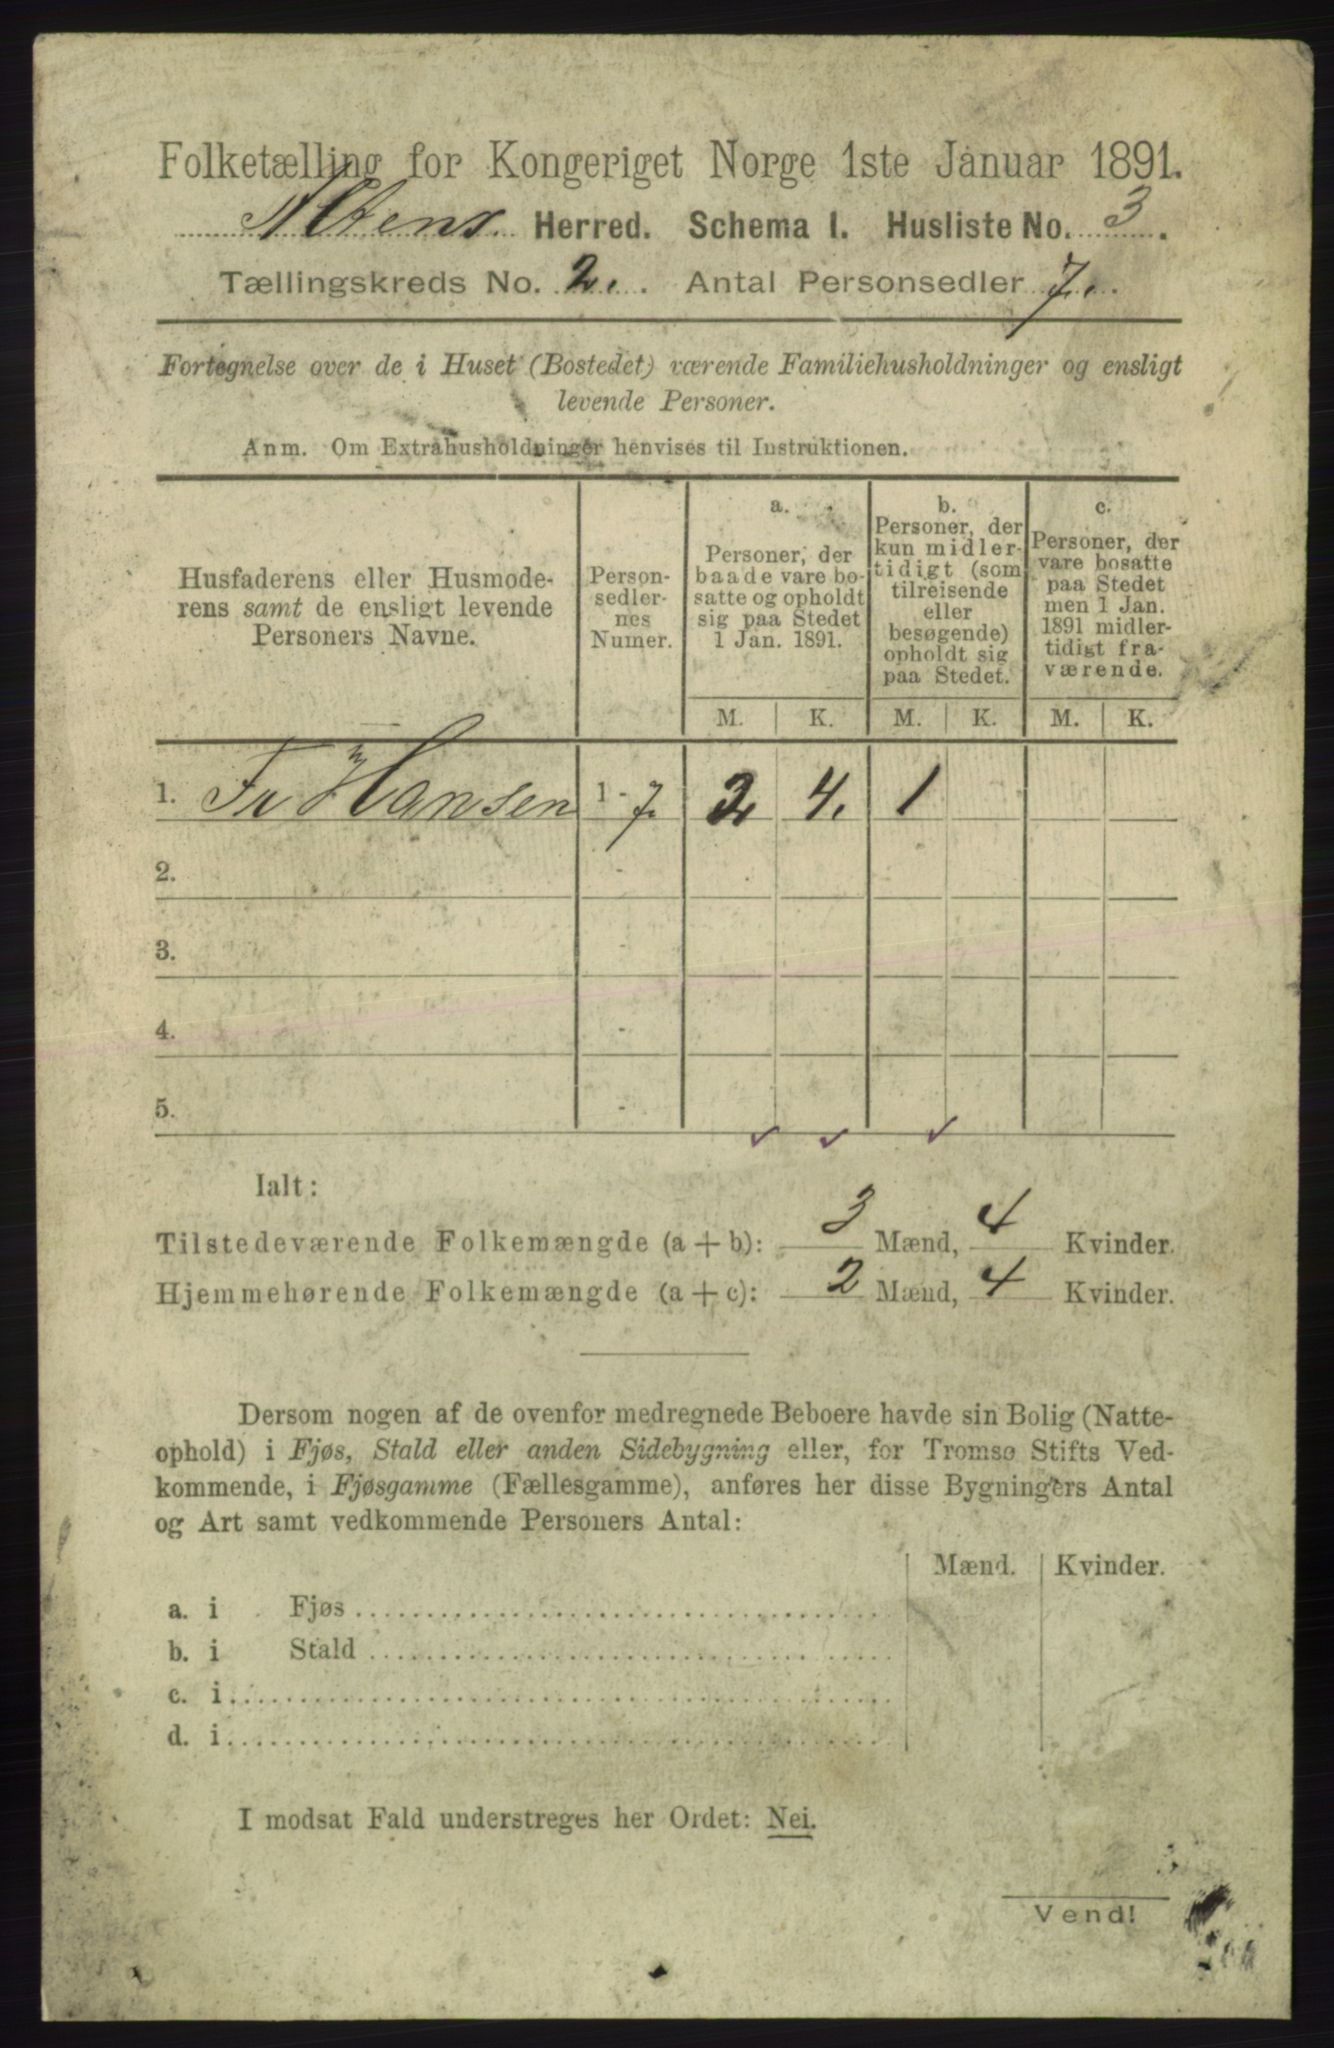 Folketælling for Kongeriget Norge 1ste Januar 1891.
Altens Herred. Schema I. Husliste No. 3.
Tællingskreds No. 2. Antal Personsedler 7.
Fortegnelse over de i Huset (Bostedet) værende Familiehusholdninger og ensligt
levende Personer.
Anm. Om Extrahusholdninger henvises til Instruktionen.
Husfaderens eller Husmode-
rens samt de ensligt levende
Personers Navne.
Person-
sedler-
nes
Numer.
a.
Personer, der
baade vare bo-
satte og opholdt
sig paa Stedet
1 Jan. 1891.
b.
Personer, der
kun midler-
tidigt (som
tilreisende
eller
besøgende)
opholdt sig
paa Stedet.
c.
Personer, der
vare bosatte
paa Stedet
men 1 Jan.
1891 midler-
tidigt fra-
værende.
M. K. M. K. M. K.
1. Fr Hansen 1 - 7. 2 4. 1
2.
3. -
4. -
5. -
Ialt:
Tilstedeværende Folkemængde (a + b): 3 Mænd, 4 Kvinder.
Hjemmehørende Folkemængde (a + c): 2 Mænd, 4 Kvinder.
Dersom nogen af de ovenfor medregnede Beboere havde sin Bolig (Natte-
ophold) i Fjøs, Stald eller anden Sidebygning eller, for Tromsø Stifts Ved-
kommende, i Fjøsgamme (Fællesgamme), anføres her disse Bygningers Antal
og Art samt vedkommende Personers Antal:
Mænd. Kvinder.
a. i Fjøs
b. i Stald
c. i
d. i
I modsat Fald understreges her Ordet: Nei.
Vend!